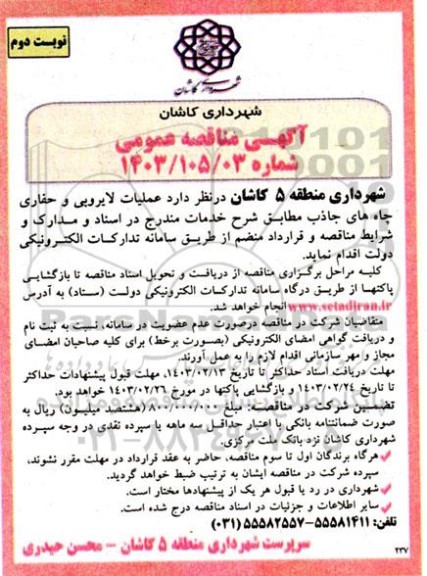 نوبت دوم
شهرداری کاشان
شهرداری کاشان
آگهی مناقصه عمومی
شماره ۱۴۰۳/۱۰۵/۰۳
شهرداری منطقه ۵ کاشان درنظر دارد عملیات لایروبی و حفاری
چاه های جاذب مطابق شرح خدمات مندرج در اسناد و مدارک و
شرایط مناقصه و قرارداد منضم از طریق سامانه تدارکات الکترونیکی
دولت اقدام نماید.
کلیه مراحل برگزاری مناقصه از دریافت و تحویل اسناد مناقصه تا بازگشایی
پاکتها از طریق درگاه سامانه تدارکات الکترونیکی دولت (ستاد) به آدرس
www.setadiran.ir انجام خواهد شد.
متقاضیان شرکت در مناقصه درصورت عدم عضویت در سامانه، نسبت به ثبت نام
و دریافت گواهی امضای الکترونیکی (بصورت برخط) برای کلیه صاحبان امضای
مجاز و مهر سازمانی اقدام لازم را به عمل آورند.
مهلت دریافت اسناد حداکثر تا تاریخ ۱۴۰۳/۰۲/۱۳، مهلت قبول پیشنهادات حداکثر
تا تاریخ ۱۴۰۳/۰۲/۲۴ و بازگشایی پاکتها در مورخ ۱۴۰۳/۰۲/۲۶ خواهد بود.
تضمین شرکت در مناقصه: مبلغ ۸۰۰/۰۰۰/۰۰۰ (هشتصد میلیون) ریال به
صورت ضمانتنامه بانکی با اعتبار حداقل سه ماهه یا سپرده نقدی در وجه سپرده
شهرداری کاشان نزد بانک ملت مرکزی.
هرگاه برندگان اول تا سوم مناقصه، حاضر به عقد قرارداد در مهلت مقرر نشوند،
سپرده شرکت در مناقصه ایشان به ترتیب ضبط خواهد گردید.
شهرداری در رد یا قبول هر یک از پیشنهادها مختار است.
سایر اطلاعات و جزئیات در اسناد مناقصه درج شده است.
تلفن: ۵۵۵۸۱۴۱۱-۵۵۵۸۲۵۵۷ (۰۳۱)
سرپرست شهرداری منطقه ۵ کاشان - محسن حیدری
۲۳۷